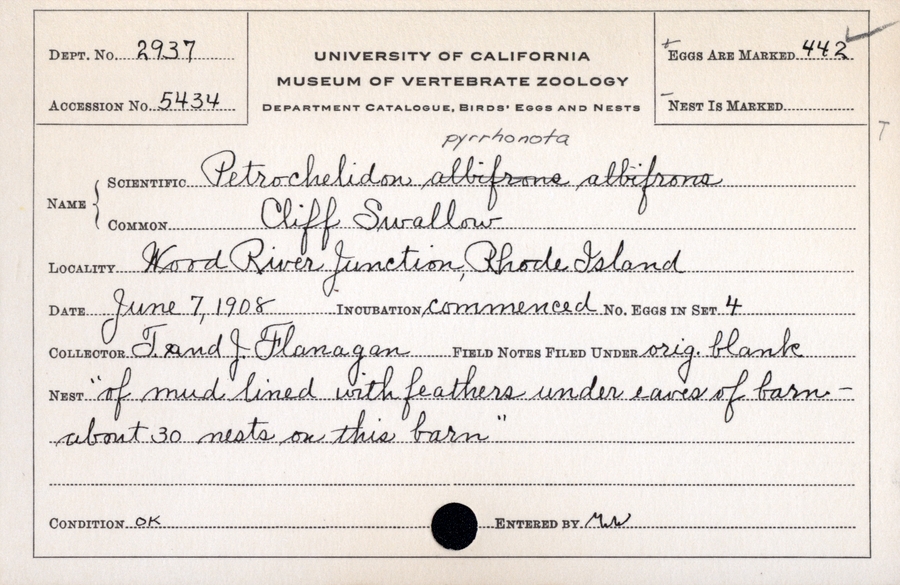 Dept. No. 2937
Accession No. 5434
UNIVERSITY OF CALIFORNIA
MUSEUM OF VERTEBRATE ZOOLOGY
Department Catalogue, Birds' Eggs and Nests
+ Eggs Are Marked 442
- Nest Is Marked
T
pyrrhonota
Name { Scientific Petrochelidon albifrons albifrons
Common Cliff Swallow
Locality Wood River Junction, Rhode Island
Date June 7, 1908 Incubation commenced No. Eggs in Set 4
Collector T. and J. Flanagan Field Notes Filed Under orig. blank
Nest "of mud lined with feathers under eaves of barn -
about 30 nests on this barn"
Condition OK Entered by